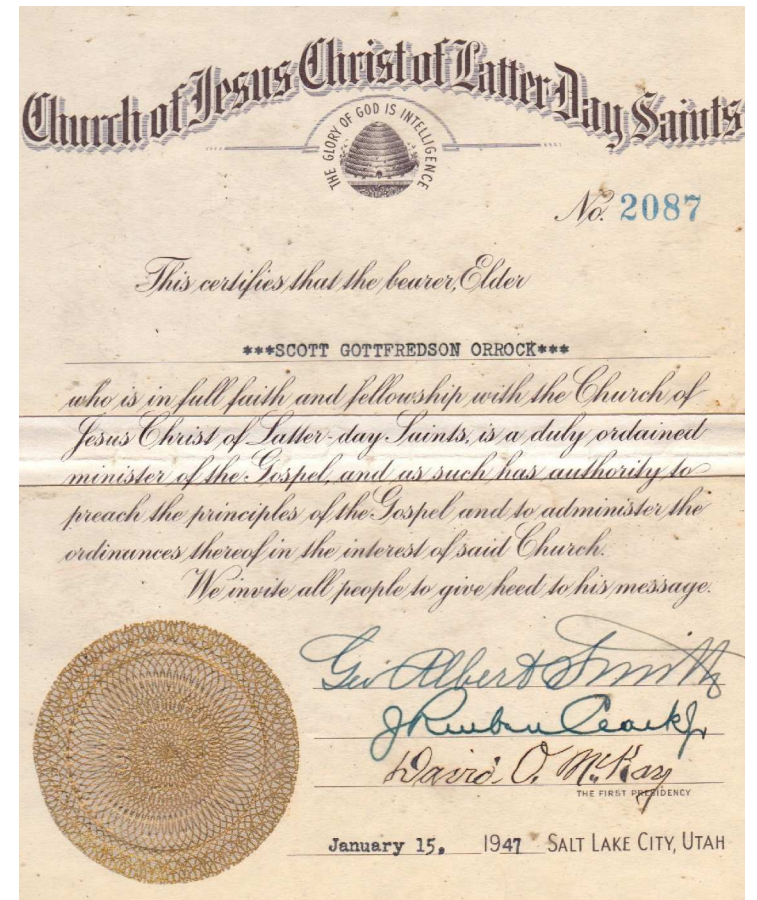 Church of Jesus Christ of Latter-Day Saints
THE GLORY OF GOD IS INTELLIGENCE
No. 2087
This certifies that the bearer, Elder
***SCOTT GOTTFREDSON ORROCK***
who is in full faith and fellowship with the Church of
Jesus Christ of Latter-day Saints, is a duly ordained
minister of the Gospel, and as such has authority to
preach the principles of the Gospel and to administer the
ordinances thereof in the interest of said Church.
We invite all people to give heed to his message.
Geo Albert Smith
J Reuben Clark Jr
David O. McKay
THE FIRST PRESIDENCY
January 15, 1947 SALT LAKE CITY, UTAH